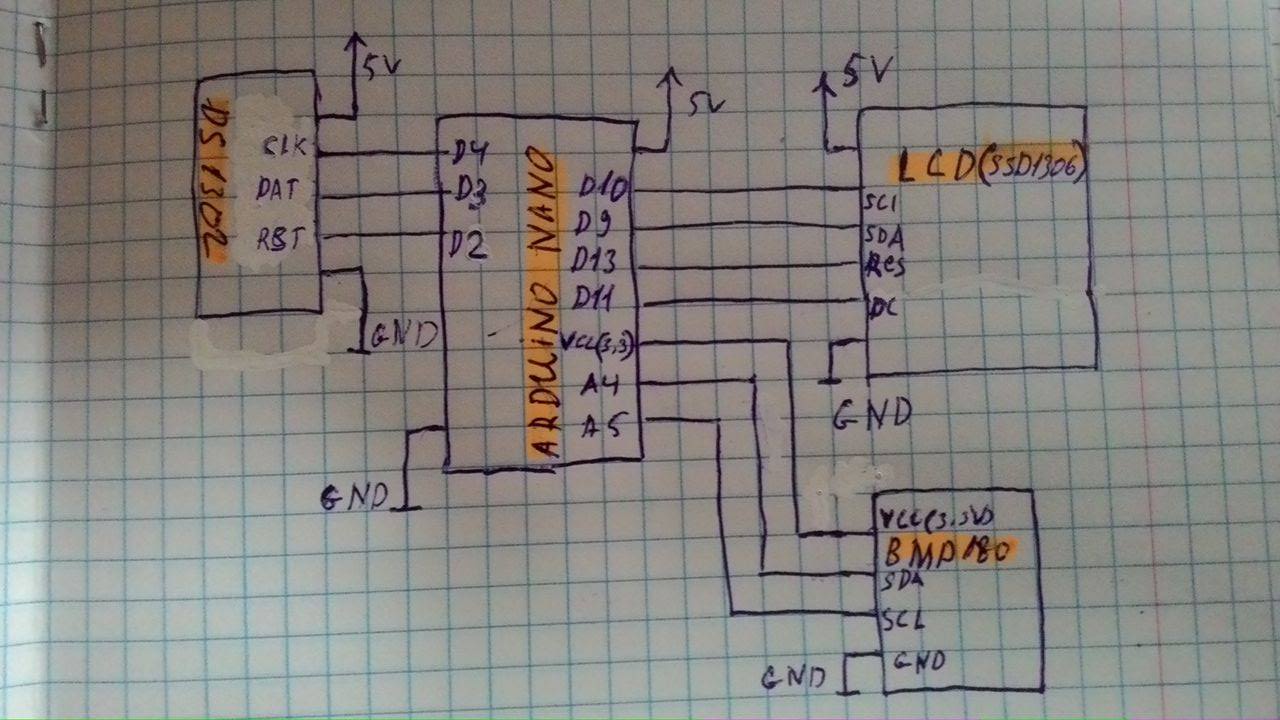 5V
DS1302
CLK
DAT
RST
GND
5V
ARDUINO NANO
D4
D3
D2
D10
D9
D13
D11
VCC(3,3)
A4
A5
GND
5V
LCD(SSD1306)
SCL
SDA
Res
DC
GND
VCC(3.3V)
BMP180
SDA
SCL
GND
GND